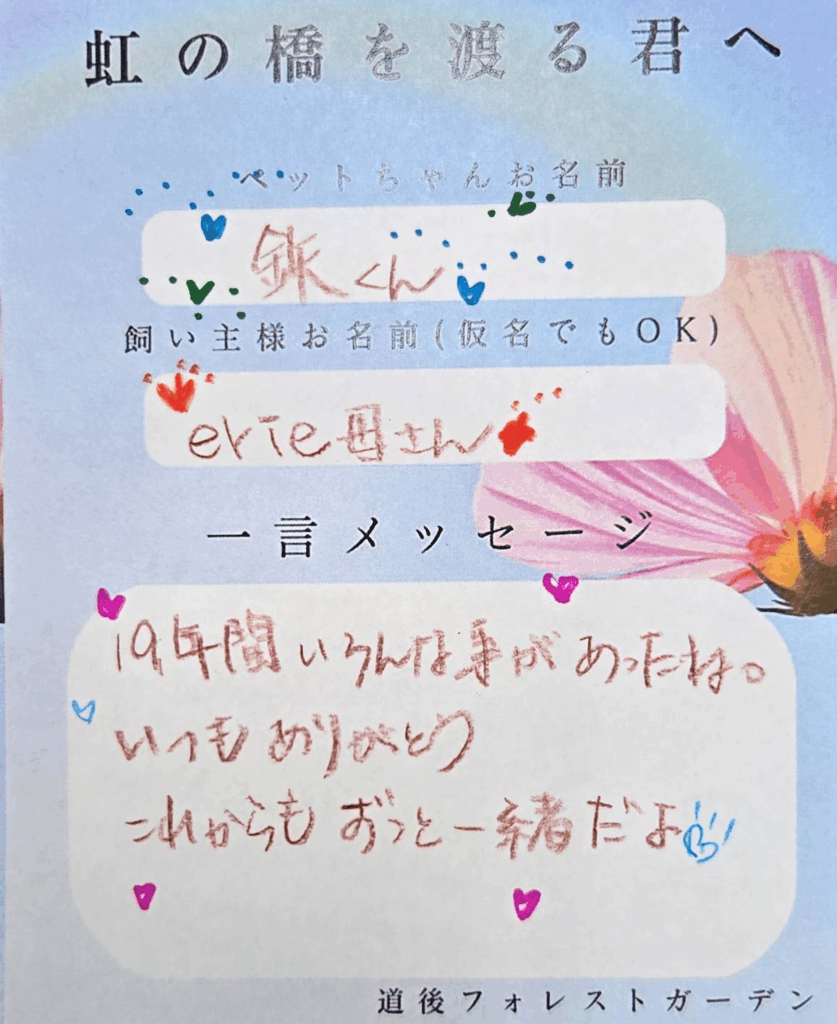 虹の橋を渡る君へ
ペットちゃんお名前
くん
飼い主様お名前(仮名でもOK)
erie母さん
一言メッセージ
19年間いろんな事があったね。
いつもありがとう
これからもずっと一緒だよ
道後フォレストガーデン